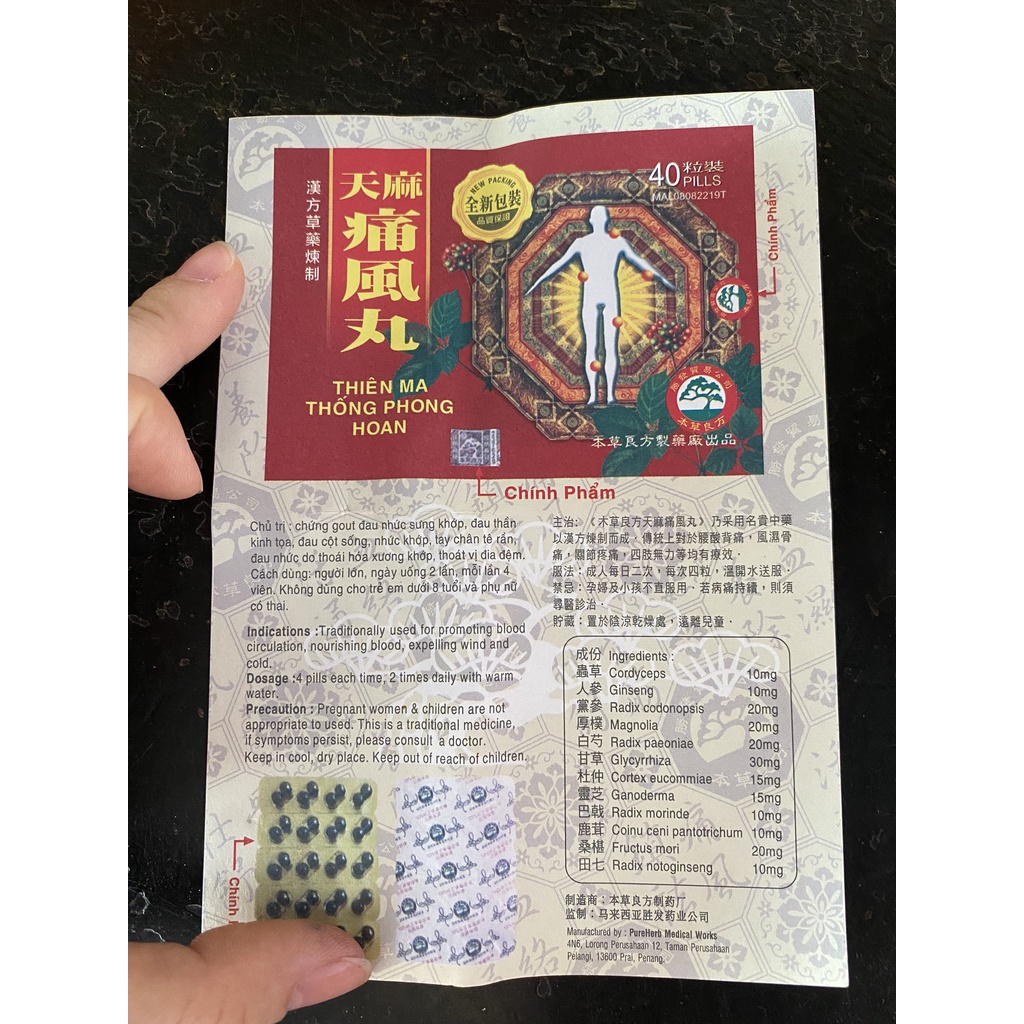 40粒裝
PILLS
MAL08082219T
NEW PACKING
全新包裝
品質保證
漢方草藥煉制
天麻
痛風丸
THIÊN MA
THỐNG PHONG
HOAN
勝發貿易公司
本草良方
本草良方製藥廠出品
Chính Phẩm
Chính Phẩm
Chủ trị : chứng gout đau nhức sưng khớp, đau thần
kinh tọa, đau cột sống, nhức khớp, tay chân tê rần,
đau nhức do thoái hóa xương khớp, thoát vị đĩa đệm.
Cách dùng: người lớn, ngày uống 2 lần, mỗi lần 4
viên. Không dùng cho trẻ em dưới 8 tuổi và phụ nữ
có thai.
Indications :Traditionally used for promoting blood
circulation, nourishing blood, expelling wind and
cold.
Dosage :4 pills each time, 2 times daily with warm
water.
Precaution : Pregnant women & children are not
appropriate to used. This is a traditional medicine,
if symptoms persist, please consult a doctor.
Keep in cool, dry place. Keep out of reach of children.
主治: 《木草良方天麻痛風丸》乃采用名貴中藥
以漢方煉制而成、傳統上對於腰酸背痛，風濕骨
痛，關節疼痛，四肢無力等均有療效．
服法：成人每日二次，每次四粒，溫開水送服．
禁忌：孕婦及小孩不直服用．若病痛持續，則須
尋醫診治．
貯藏：置於陰涼乾燥處，遠離兒童．
成份 Ingredients :
蟲草 Cordyceps 10mg
人參 Ginseng 10mg
黨參 Radix codonopsis 20mg
厚樸 Magnolia 20mg
白芍 Radix paeoniae 20mg
甘草 Glycyrrhiza 30mg
杜仲 Cortex eucommiae 15mg
靈芝 Ganoderma 15mg
巴戟 Radix morinde 10mg
鹿茸 Coinu ceni pantotrichum 10mg
桑椹 Fructus mori 20mg
田七 Radix notoginseng 10mg
制造商：本草良方制药厂
监制：马来西亚胜发药业公司
Manufactured by : PureHerb Medical Works
4N6, Lorong Perusahaan 12, Taman Perusahaan
Pelangi, 13600 Prai, Penang.
Chính